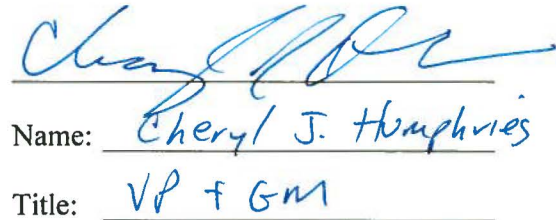 Name: Cheryl J. Humphries
Title: VP + GM